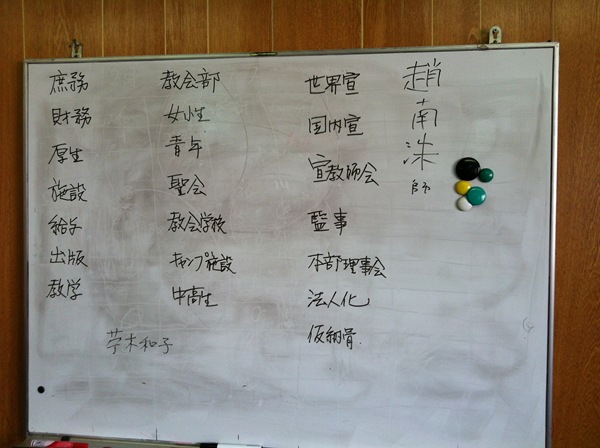 庶務
財務
厚生
施設
給与
出版
教学
教会部
女性
青年
聖会
教会学校
キャンプ施設
中高生
世界宣
国内宣
宣教師会
監事
本部理事会
法人化
趙南洙師